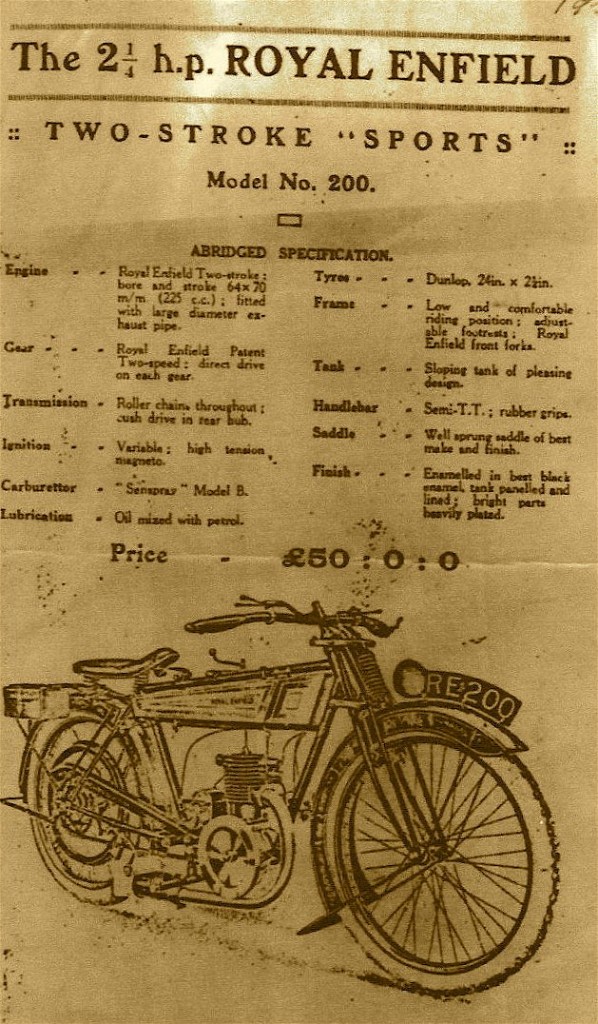 The 2¼ h.p. ROYAL ENFIELD
:: TWO-STROKE "SPORTS" ::
Model No. 200.
ABRIDGED SPECIFICATION.
Engine - - Royal Enfield Two-stroke;
bore and stroke 64×70
m/m (225 c.c.); fitted
with large diameter ex-
haust pipe.
Gear - - - Royal Enfield Patent
Two-speed; direct drive
on each gear.
Transmission - Roller chains throughout;
cush drive in rear hub.
Ignition - - Variable; high tension
magneto.
Carburettor - "Senspray" Model B.
Lubrication - Oil mixed with petrol.
Tyres - - - Dunlop, 24in. × 2¼in.
Frame - - Low and comfortable
riding position; adjust-
able footrests; Royal
Enfield front forks.
Tank - - - Sloping tank of pleasing
design.
Handlebar - Semi-T.T.; rubber grips.
Saddle - - Well sprung saddle of best
make and finish.
Finish - - - Enamelled in best black
enamel, tank panelled and
lined; bright parts
heavily plated.
Price - £50 : 0 : 0
ROYAL ENFIELD
RE·200